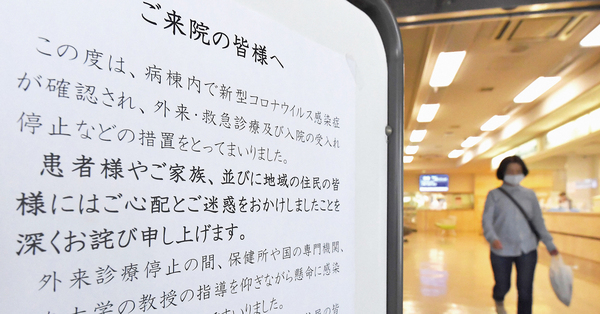 ご来院の皆様へ
この度は、病棟内で新型コロナウイルス感染症
が確認され、外来・救急診療及び入院の受入れ
停止などの措置をとってまいりました。
患者様やご家族、並びに地域の住民の皆
様にはご心配とご迷惑をおかけしましたことを
深くお詫び申し上げます。
外来診療停止の間、保健所や国の専門機関、
大学の教授の指導を仰ぎながら懸命に感染
まいりました。
住民の皆